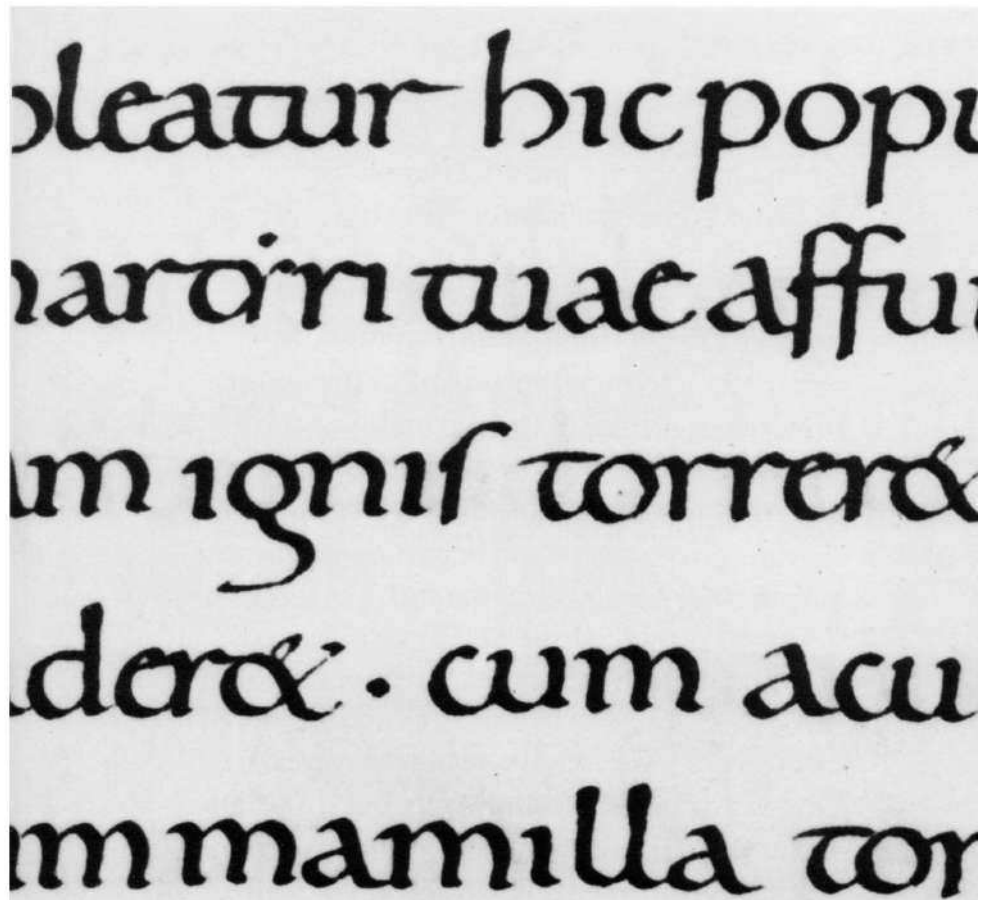 oleatur hic popu
martiri tuae affui
am ignis torreret
deret · cum acu
am mamilla tor